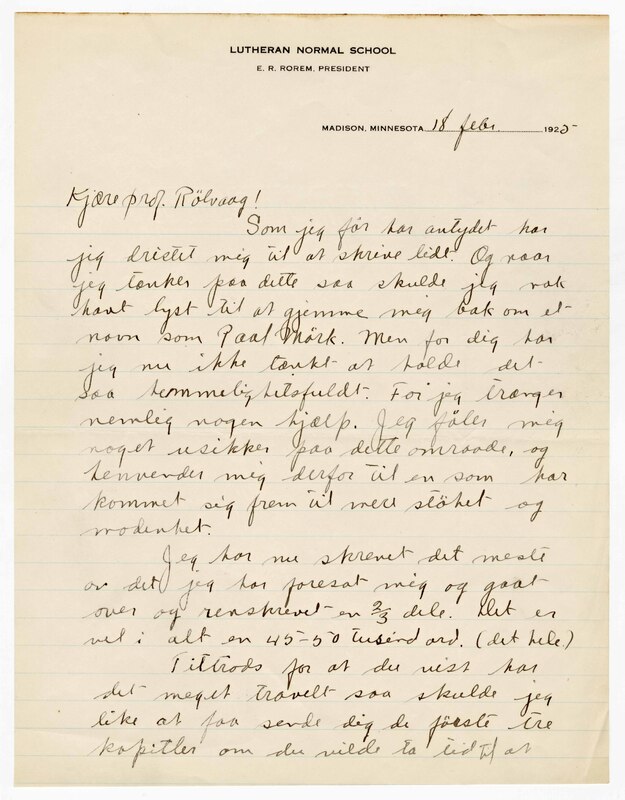 LUTHERAN NORMAL SCHOOL
E. R. ROREM, PRESIDENT
MADISON, MINNESOTA 18 febr. 1925
Kjære prof. Rölvaag!
Som jeg før har antydet har
jig dristet mig til at skrive lidt. Og naar
jeg tænker paa dette saa skulde jeg nok
havt lyst til at gjemme mig bak om et
navn som Paal Mörk. Men for dig har
jeg nu ikke tænkt at holde det
saa hemmelighetsfuldt. For jeg trænger
nemlig nogen hjælp. Jeg föler mig
noget usikker paa dette omraade, og
henvender mig derfor til en som har
kommet sig frem til mere stöhet og
modenhet.
Jeg har nu skrevet det meste
av det jeg har foresat mig og gaat
over og renskrevet en 2/3 dele. Det er
vel i alt en 45-50 tusend ord. (det hele)
Tiltrods for at du vist har
det meget travelt saa skulde jeg
like at faa sende dig de förste tre
kapitler om du vilde ta tid til at